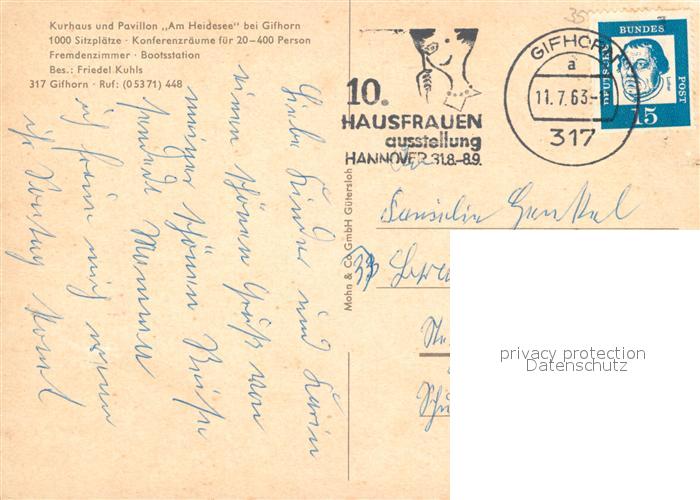 Kurhaus und Pavillon „Am Heidesee" bei Gifhorn
1000 Sitzplätze · Konferenzräume für 20–400 Person
Fremdenzimmer · Bootsstation
Bes.: Friedel Kuhls
317 Gifhorn · Ruf: (05371) 448
Liebe Kinder und Karin
einen schönen Gruß von
meiner schönen Reise
sendet Mamma
ich freue mich wenn
ihr Sontag kommt
Mohn & Co GmbH Gütersloh
10.
HAUSFRAUEN
ausstellung
HANNOVER 31.8.–8.9.
GIFHORN
a
11.7.63
317
DEUTSCHE
BUNDES
POST
Luther
15
35
Familie
33
privacy protection
Datenschutz